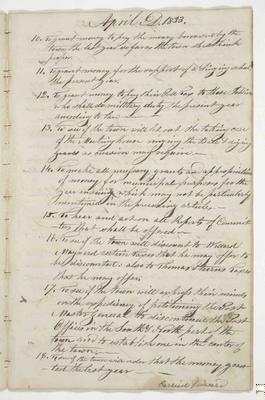 April D. 1833.
10. To grant money to pay the money borrowed by the
town the last year so far as the town shall think
proper.
11. To grant money for the support of a Singing school
the present year.
12. To grant money to pay their Poll tax to those Soldiers
who shall do military duty the present year
according to law
13. To see if the town will let out the taking care
of the Meeting house ringing the bell & digging
graves as occasion may require.
14. To make all necessary grants and appropriations
of money for municipal purposes for the
year ensuing which may not be particularly
mentioned in the preceding articles.
15. To hear and act on all Reports of Commit-
tees that shall be offered
16. To see if the town will discount to Willard
Maynard certain taxes that he may offer to
be discounted also to Thomas Stearns taxes
that he may offer
17. To see if the town will express their minds
on the expediency of petitioning the Post
Master General to discontinue the Post
Office in the South & North part of the
town and to establish one in the center of
the town
18. To see if the town will order that the money gran-
ted the last year